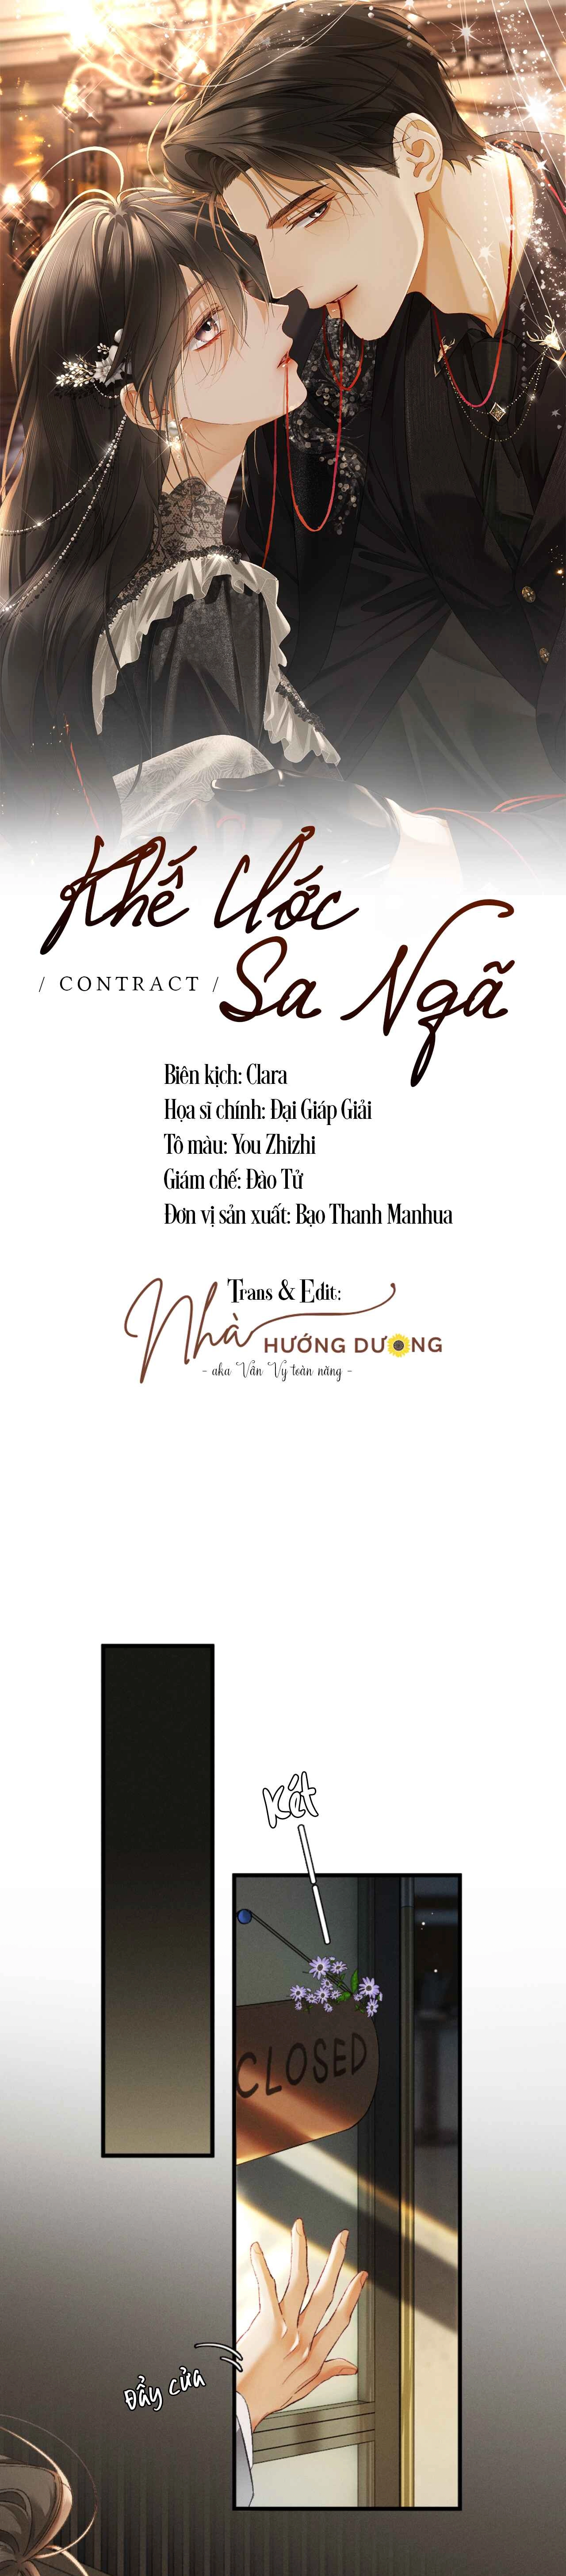 Khế Ước
/ CONTRACT /
Sa Ngã
Biên kịch: Clara
Họa sĩ chính: Đại Giáp Giải
Tô màu: You Zhizhi
Giám chế: Đào Tử
Đơn vị sản xuất: Bạo Thanh Manhua
Trans & Edit:
Nhà HƯỚNG DƯƠNG
- aka Vân Vy toàn năng -
Két
CLOSED
Đẩy cửa